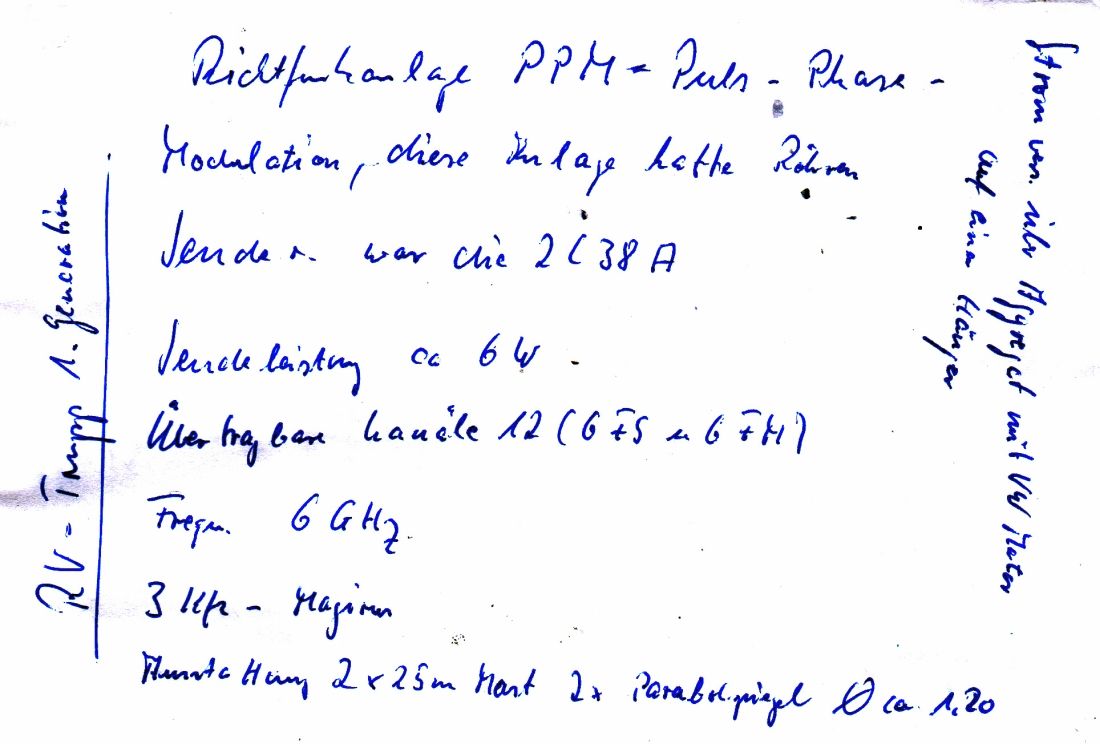 Richtfunkanlage PPM = Puls - Phase -
Modulation, diese Anlage hatte Röhren
Sender. war die 2C38A
Sendeleistung ca 6 W
Übertragbare Kanäle 12 (6 FS u 6 FM)
Frequ. 6 GHz
3 Kfz - Magirus
Ausstattung 2 x 25m Mast 2x Parabolspiegel Ø ca 1,20
RV - Trupp 1. Generation
Strom ver. über Aggregat mit VW Motor
auf einem Hänger